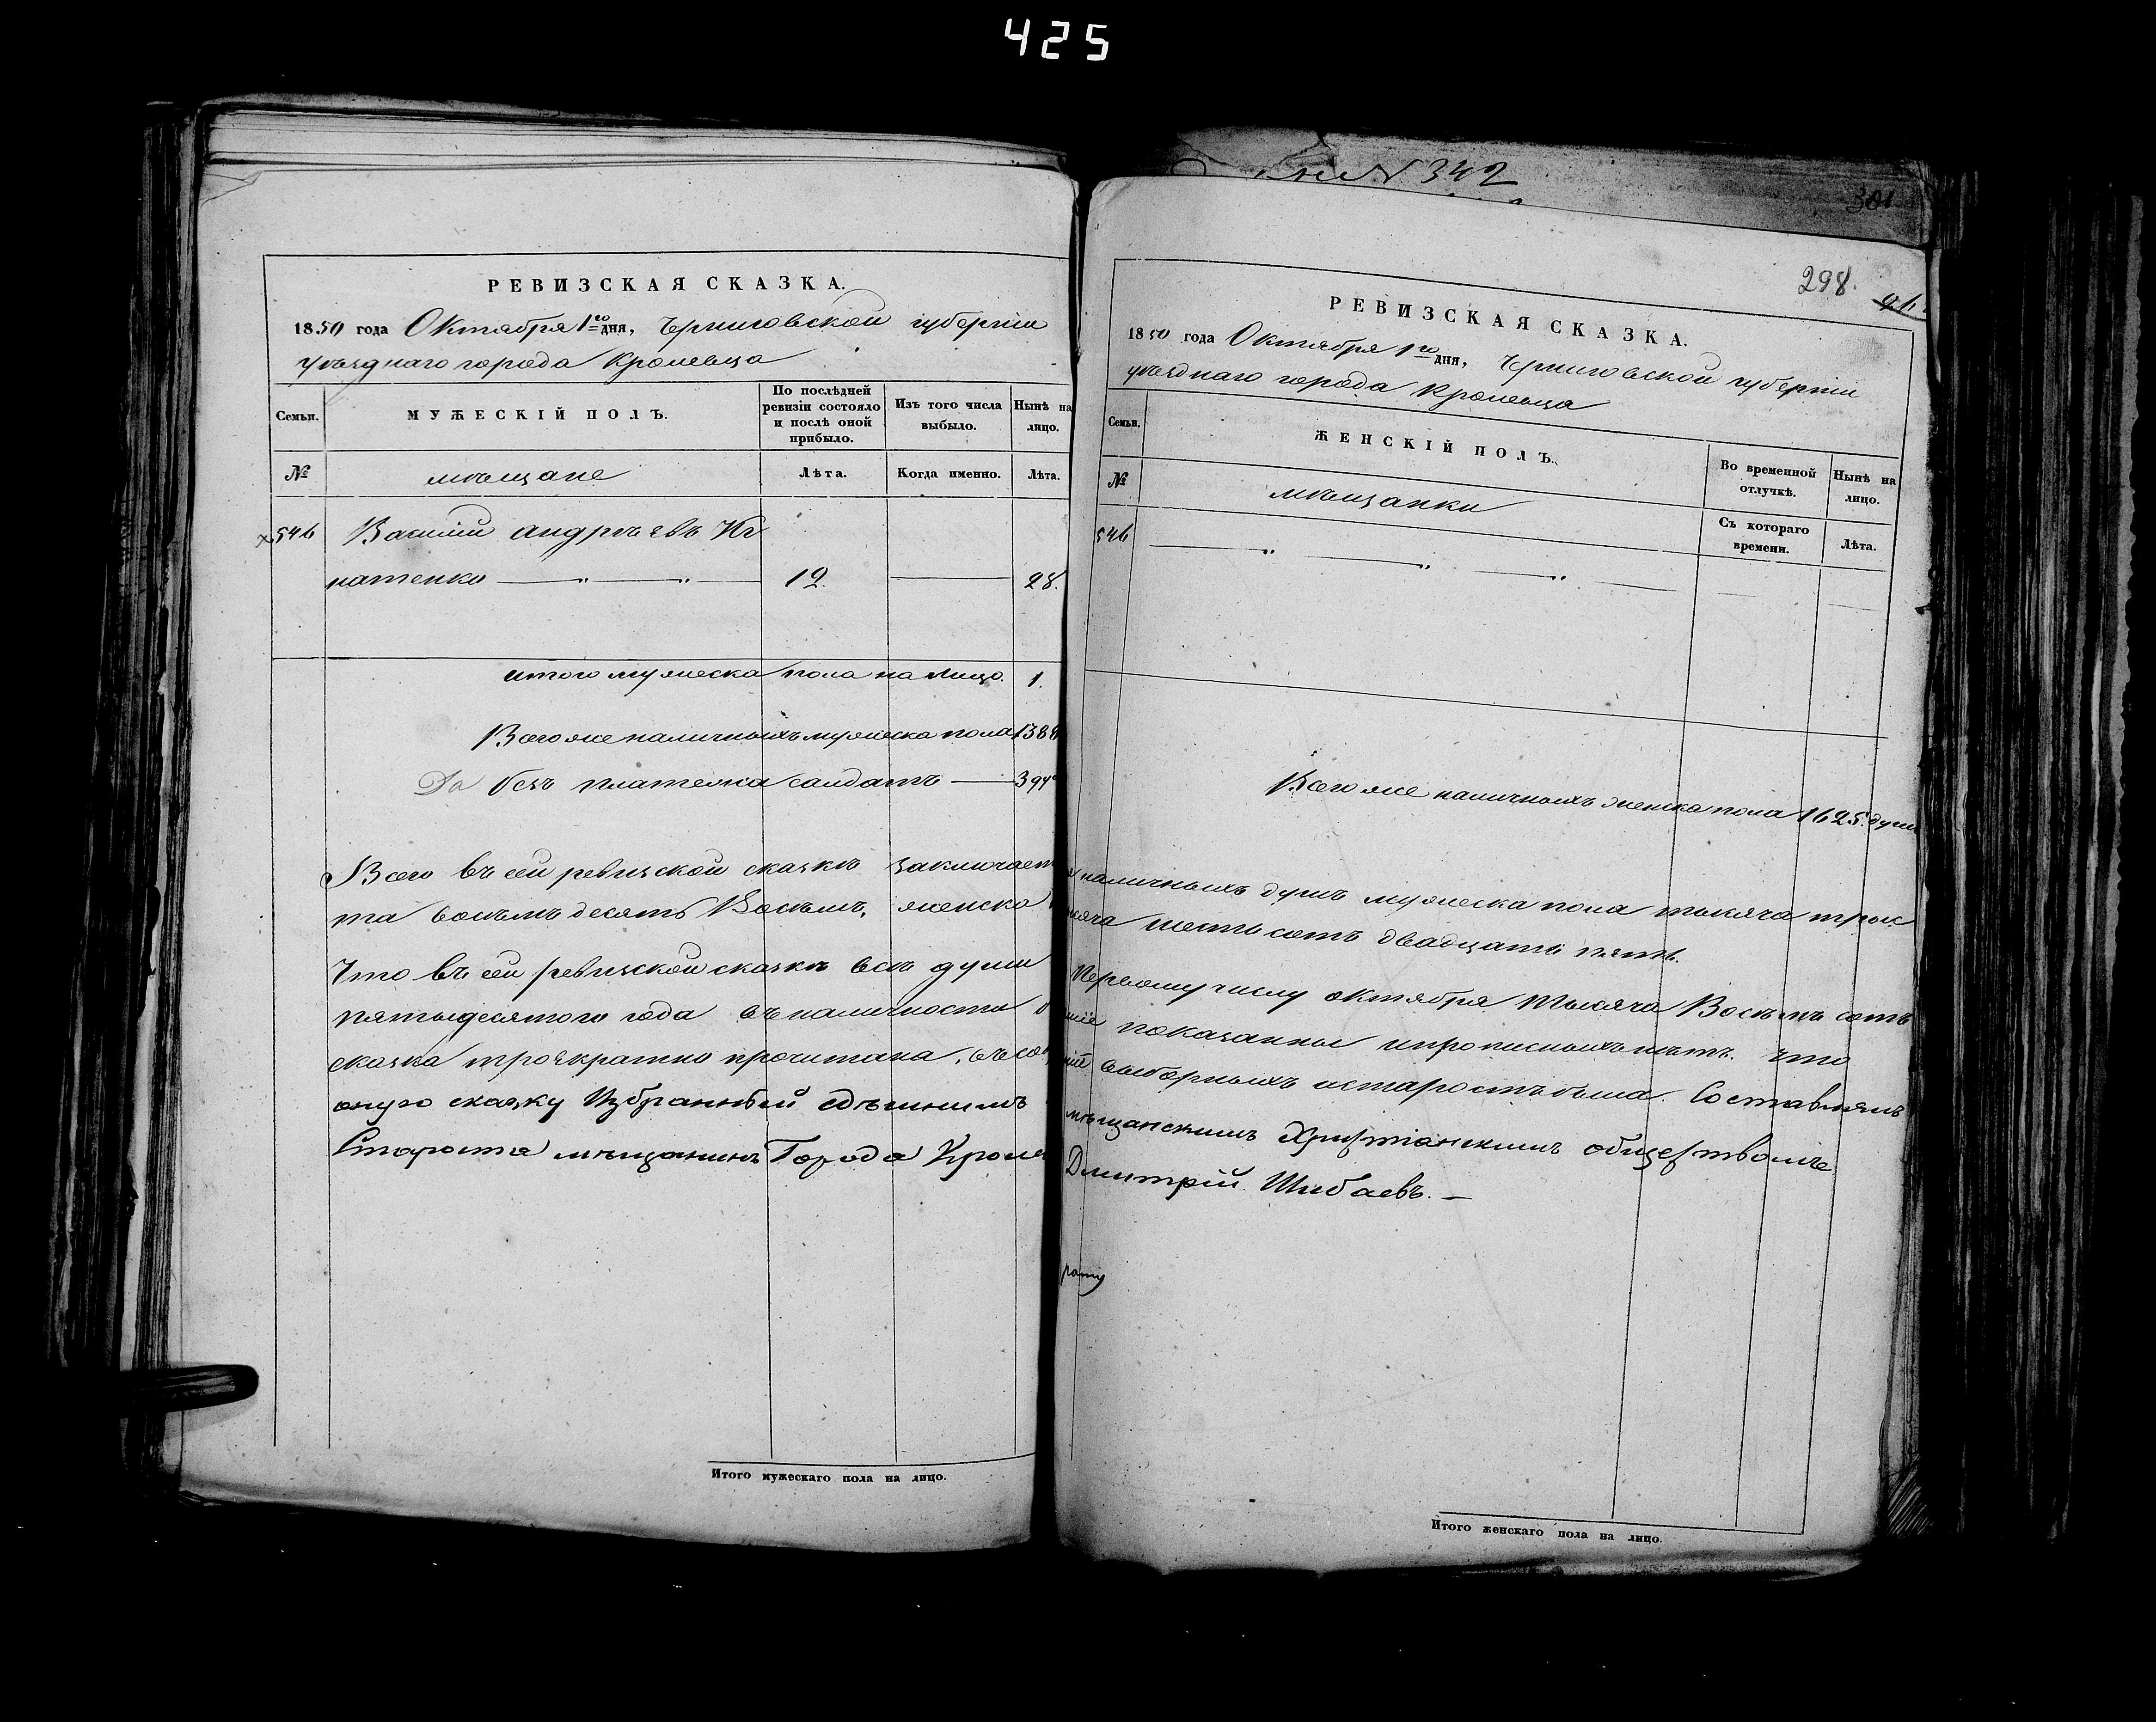 425
№ 342
301
РЕВИЗСКАЯ СКАЗКА.
1850 года Октября 1го дня, Черниговской губерніи
уѣзднаго города Кролевца
Семьи.
МУЖЕСКІЙ ПОЛЪ.
По послѣдней ревизіи состояло и послѣ оной прибыло.
Изъ того числа выбыло.
Нынѣ на лицо.
№
мѣщане
Лѣта.
Когда именно.
Лѣта.
546 Василій Андрѣевъ Иг
натенко — „ — „ — 12. — 28.
итого мужеска пола на лицо. 1.
Всего же наличныхъ мужеска пола 1388
Да безъ платежа салдатъ —
Всего въ сей ревизской сказкѣ заключает
та восемъ десятъ Восѣмъ, женска
Что въ сей ревизской сказкѣ всѣ души
пятьидесятого года въ наличности
сказка троекратно прочитана, въ
оную сказку Избранный
Староста мѣщанинъ Города Кроле
298.
РЕВИЗСКАЯ СКАЗКА.
1850 года Октября 1го дня, Черниговской губерніи
уѣзднаго города Кролевца
Семьи.
ЖЕНСКІЙ ПОЛЪ.
Во временной отлучкѣ.
Нынѣ на лицо.
№
мѣщанки
Съ котораго времени.
Лѣта.
546 — „ — „ — „ —
Всего же наличныхъ женска пола 1625. душ
наличныхъ душъ мужеска пола тысяча трис
сяча шестьсотъ двадцать пять.
Первому числу октября тысяча Восѣмъ сотъ
показанные и прописныхъ нѣтъ. что
выборныхъ и старостъ была. Составлялъ
мѣщанскимъ Христіанскимъ обществомъ
Дмитрій Шибаевъ. —
Итого мужескаго пола на лицо.
Итого женскаго пола на лицо.